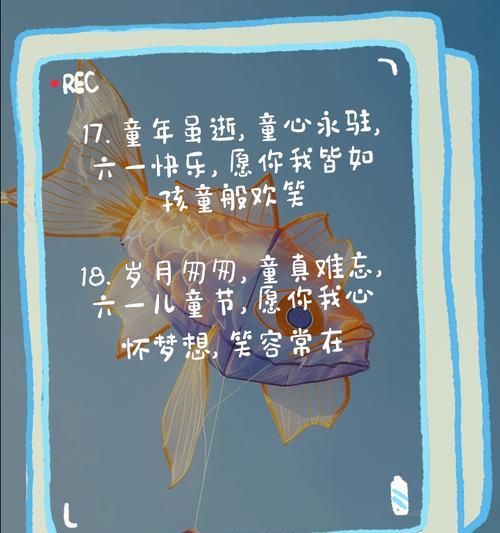 REC
17. 童年虽逝, 童心永驻,
六一快乐, 愿你我皆如
孩童般欢笑
18. 岁月匆匆, 童真难忘,
六一儿童节, 愿你我心
怀梦想, 笑容常在